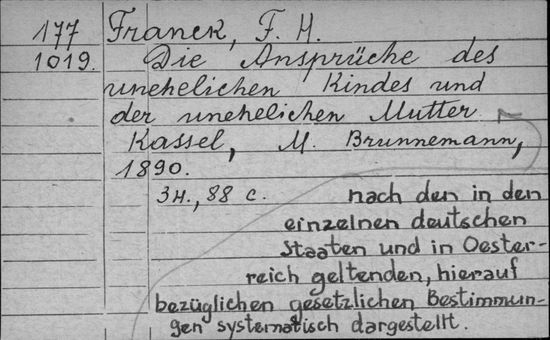 177 Franck, F. H.
1019. Die Ansprüche des
unehelichen Kindes und
der unehelichen Mutter
Kassel, M. Brunnemann,
1890.
3н., 88 с. nach den in den
einzelnen deutschen
Staaten und in Oester-
reich geltenden, hierauf
bezüglichen gesetzlichen Bestimmun-
gen systematisch dargestellt.